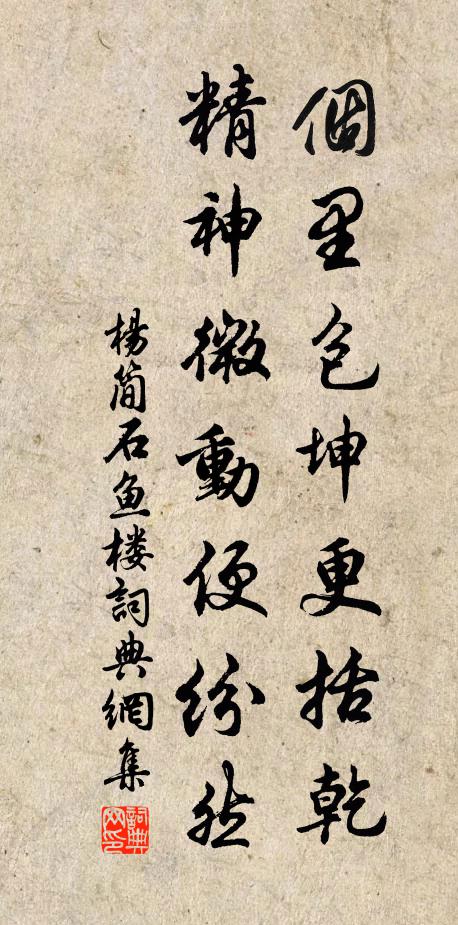 個里包坤更括乾
精神微動便紛然
楊簡石魚楼詞典網集
詞典网印